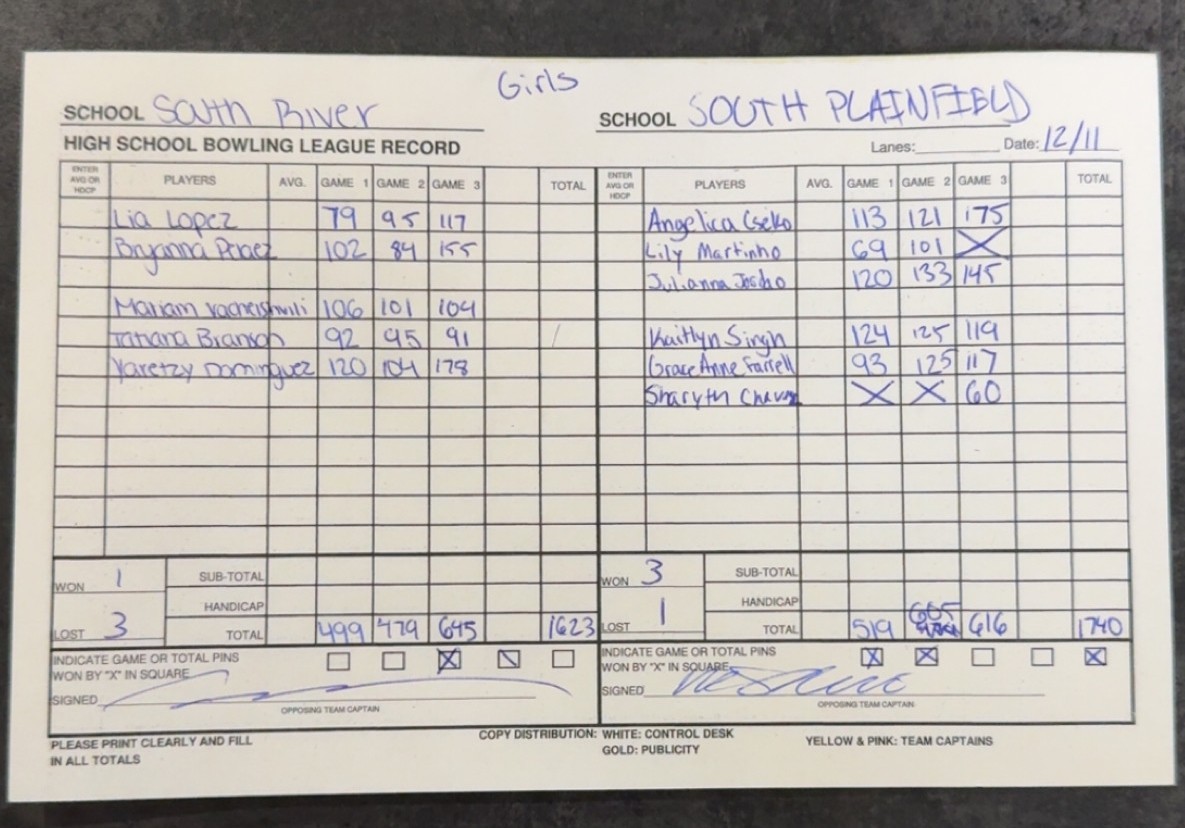 Girls
SCHOOL South River
SCHOOL SOUTH PLAINFIELD
HIGH SCHOOL BOWLING LEAGUE RECORD
Lanes: Date: 12/11
ENTER AVG OR HDCP PLAYERS AVG. GAME 1 GAME 2 GAME 3 TOTAL
Lia Lopez 79 95 117
Bryanna 102 84 155
Mariam 106 101 104
Tatiana Branson 92 95 91
Yaretzy Dominguez 120 104 178
WON 1 SUB-TOTAL
HANDICAP
LOST 3 TOTAL 499 479 645 1623
INDICATE GAME OR TOTAL PINS
WON BY "X" IN SQUARE X
SIGNED
OPPOSING TEAM CAPTAIN
ENTER AVG OR HDCP PLAYERS AVG. GAME 1 GAME 2 GAME 3 TOTAL
Angelica Cseko 113 121 175
Lily Martinho 69 101 X
Julianna 120 133 145
Kaitlyn Singh 124 125 119
Grace Anne Farrell 93 125 117
X X 60
WON 3 SUB-TOTAL
HANDICAP
LOST 1 TOTAL 519 605 616 1740
INDICATE GAME OR TOTAL PINS
WON BY "X" IN SQUARE X X X
SIGNED
OPPOSING TEAM CAPTAIN
PLEASE PRINT CLEARLY AND FILL
IN ALL TOTALS
COPY DISTRIBUTION: WHITE: CONTROL DESK
GOLD: PUBLICITY
YELLOW & PINK: TEAM CAPTAINS